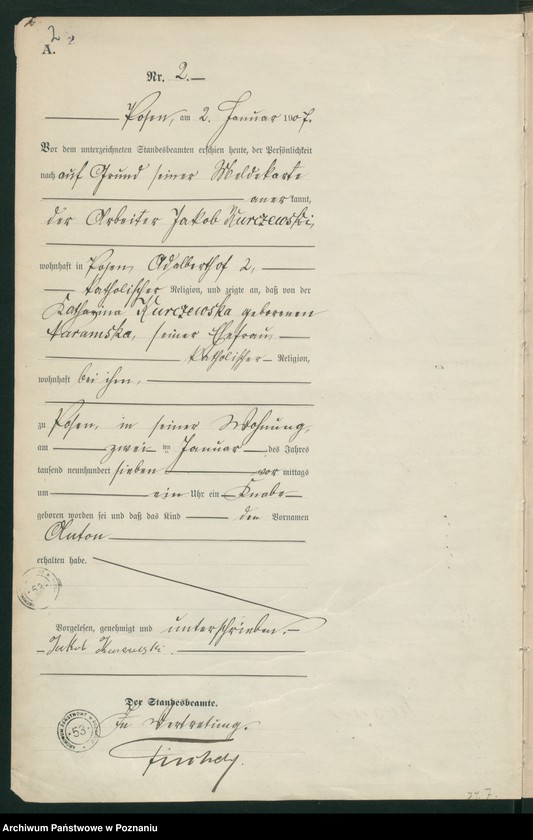 2
A.
Nr. 2.
Posen, am 2. Januar 1907.
Vor dem unterzeichneten Standesbeamten erschien heute, der Persönlichkeit
nach auf Grund seiner Meldekarte
anerkannt,
der Arbeiter Jakob Kurczewski,
wohnhaft in Posen, Adalberthof 2,
katholischer Religion, und zeigte an, daß von der
Katharina Kurczewska geborenen
seiner Ehefrau
katholischer Religion,
wohnhaft bei ihm,
zu Posen, in seiner Wohnung,
am zweiten Januar des Jahres
tausend neunhundert sieben vormittags
um ein Uhr ein Knabe
geboren worden sei und daß das Kind den Vornamen
Anton
erhalten habe.
53
Vorgelesen, genehmigt und unterschrieben.
Jakob Kurczewski.
Der Standesbeamte.
In Vertretung.
53
Archiwum Państwowe w Poznaniu